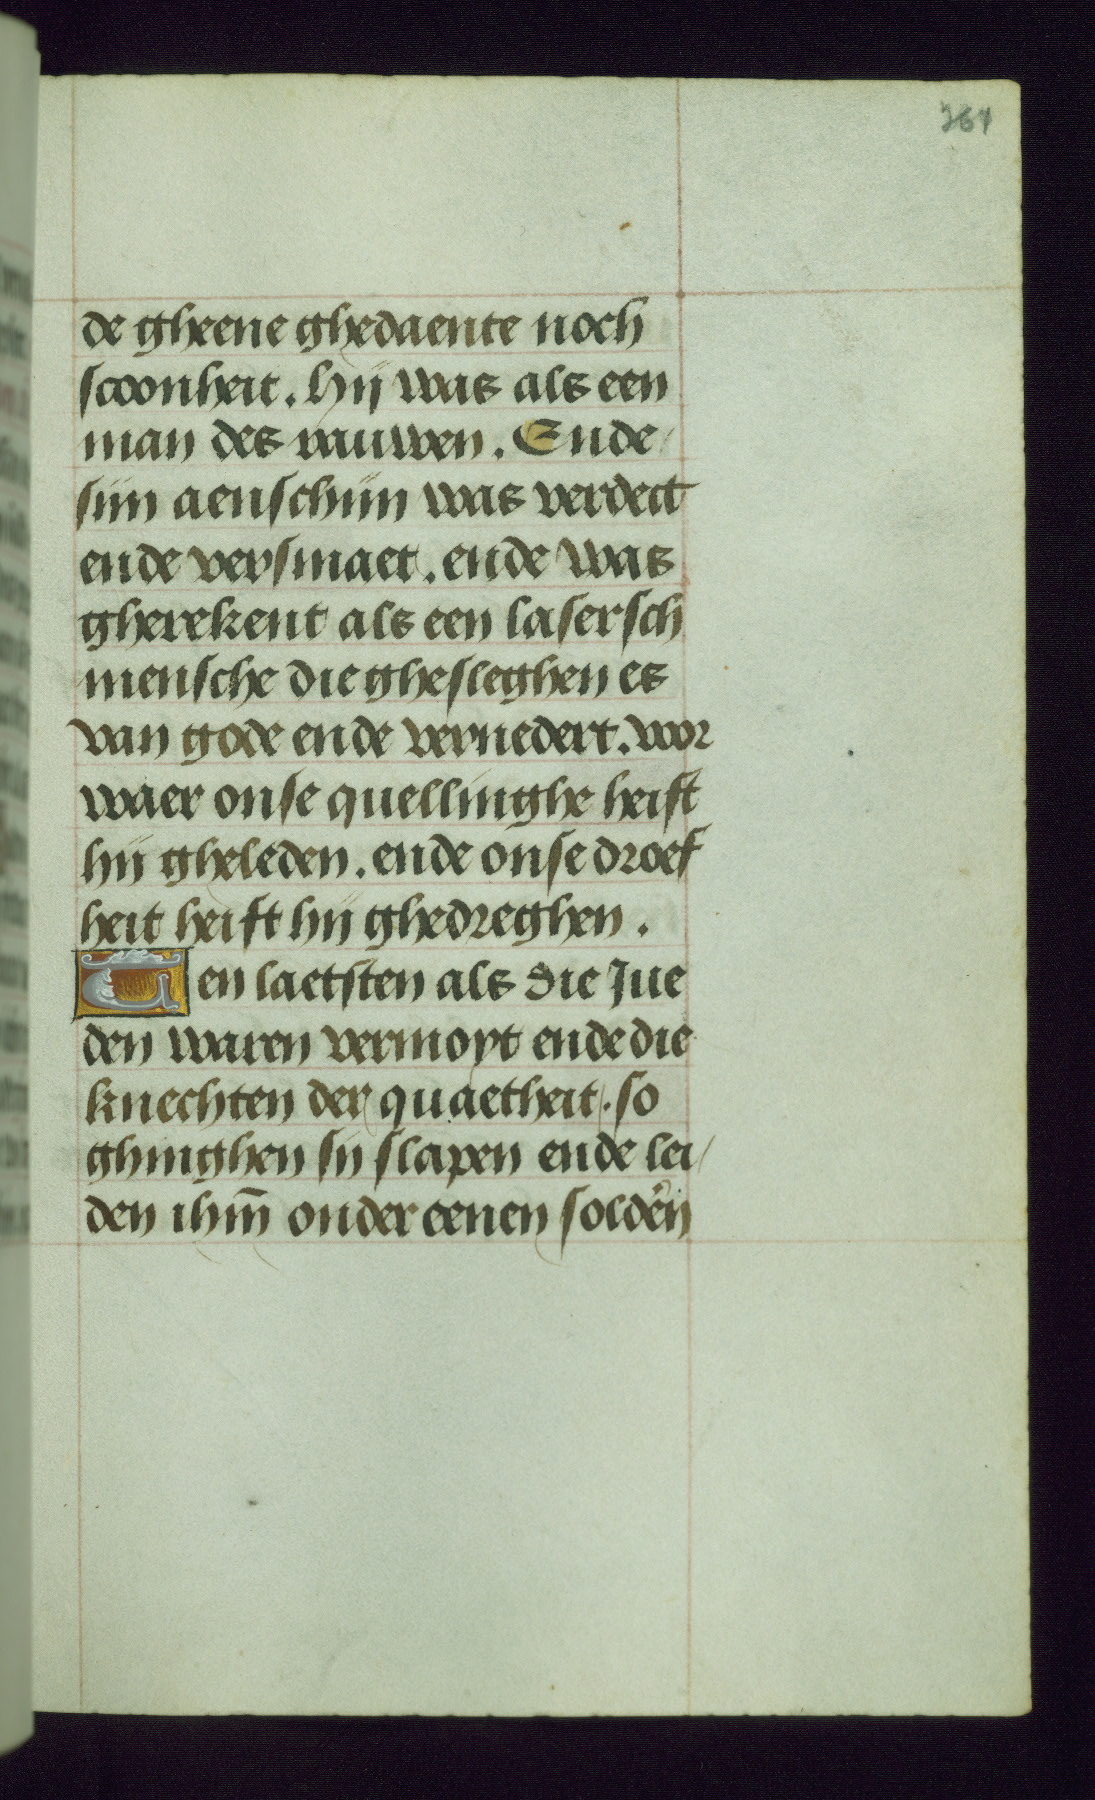 261
de gheene ghedaente noch
scoonheit. hij was als een
man des rauwen. Ende
sijn aenschijn was verdect
ende versmaet. ende was
gherekent als een lasersch
mensche die ghesleghen es
van gode ende vernedert. voor
waer onse quellinghe heift
hij gheleden. ende onse droef
heit heift hij ghedreghen.
Ten laetsten als die Jue
den waren vermoyt ende die
knechten der quaetheit. so
ghinghen sij slapen ende lei
den ihm̄ onder eenen soldeṙn